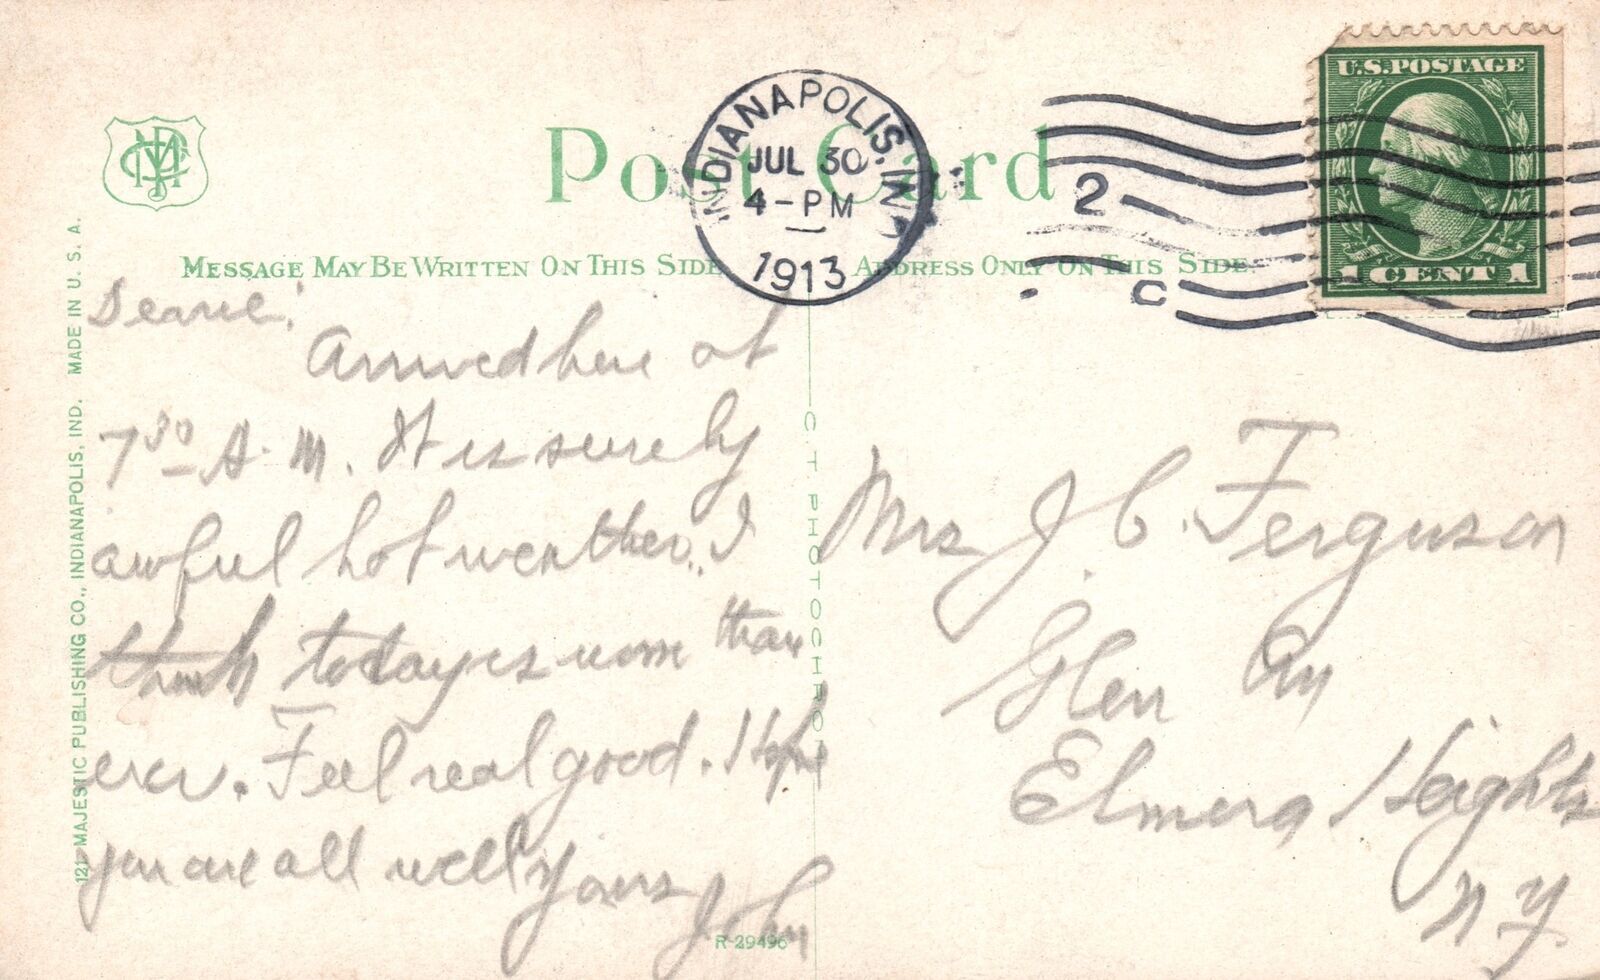 Post Card
MESSAGE MAY BE WRITTEN ON THIS SIDE
ADDRESS ONLY ON THIS SIDE
INDIANAPOLIS, IND.
JUL 30
4-PM
1913
2
C
U.S. POSTAGE
1 CENT 1
Dearie:
Arrived here at
7 30 A. M. It is surely
awful hot weather. I
think today is worse than
ever. Feel real good. Hope
you are all well. Yours
John
Mrs J. C. Ferguson
Glen Av
Elmira Heights
N. Y.
121 MAJESTIC PUBLISHING CO., INDIANAPOLIS, IND. MADE IN U. S. A.
C. T. PHOTOCHROM
R-29496